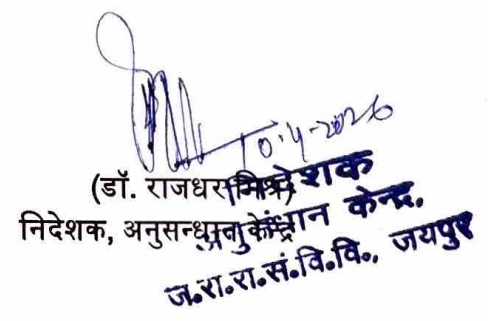 10-4-2026
(डॉ. राजधर मिश्र)
निदेशक, अनुसन्धान केन्द्र
निदेशक
अनुसंधान केन्द्र,
ज.रा.रा.सं.वि.वि., जयपुर